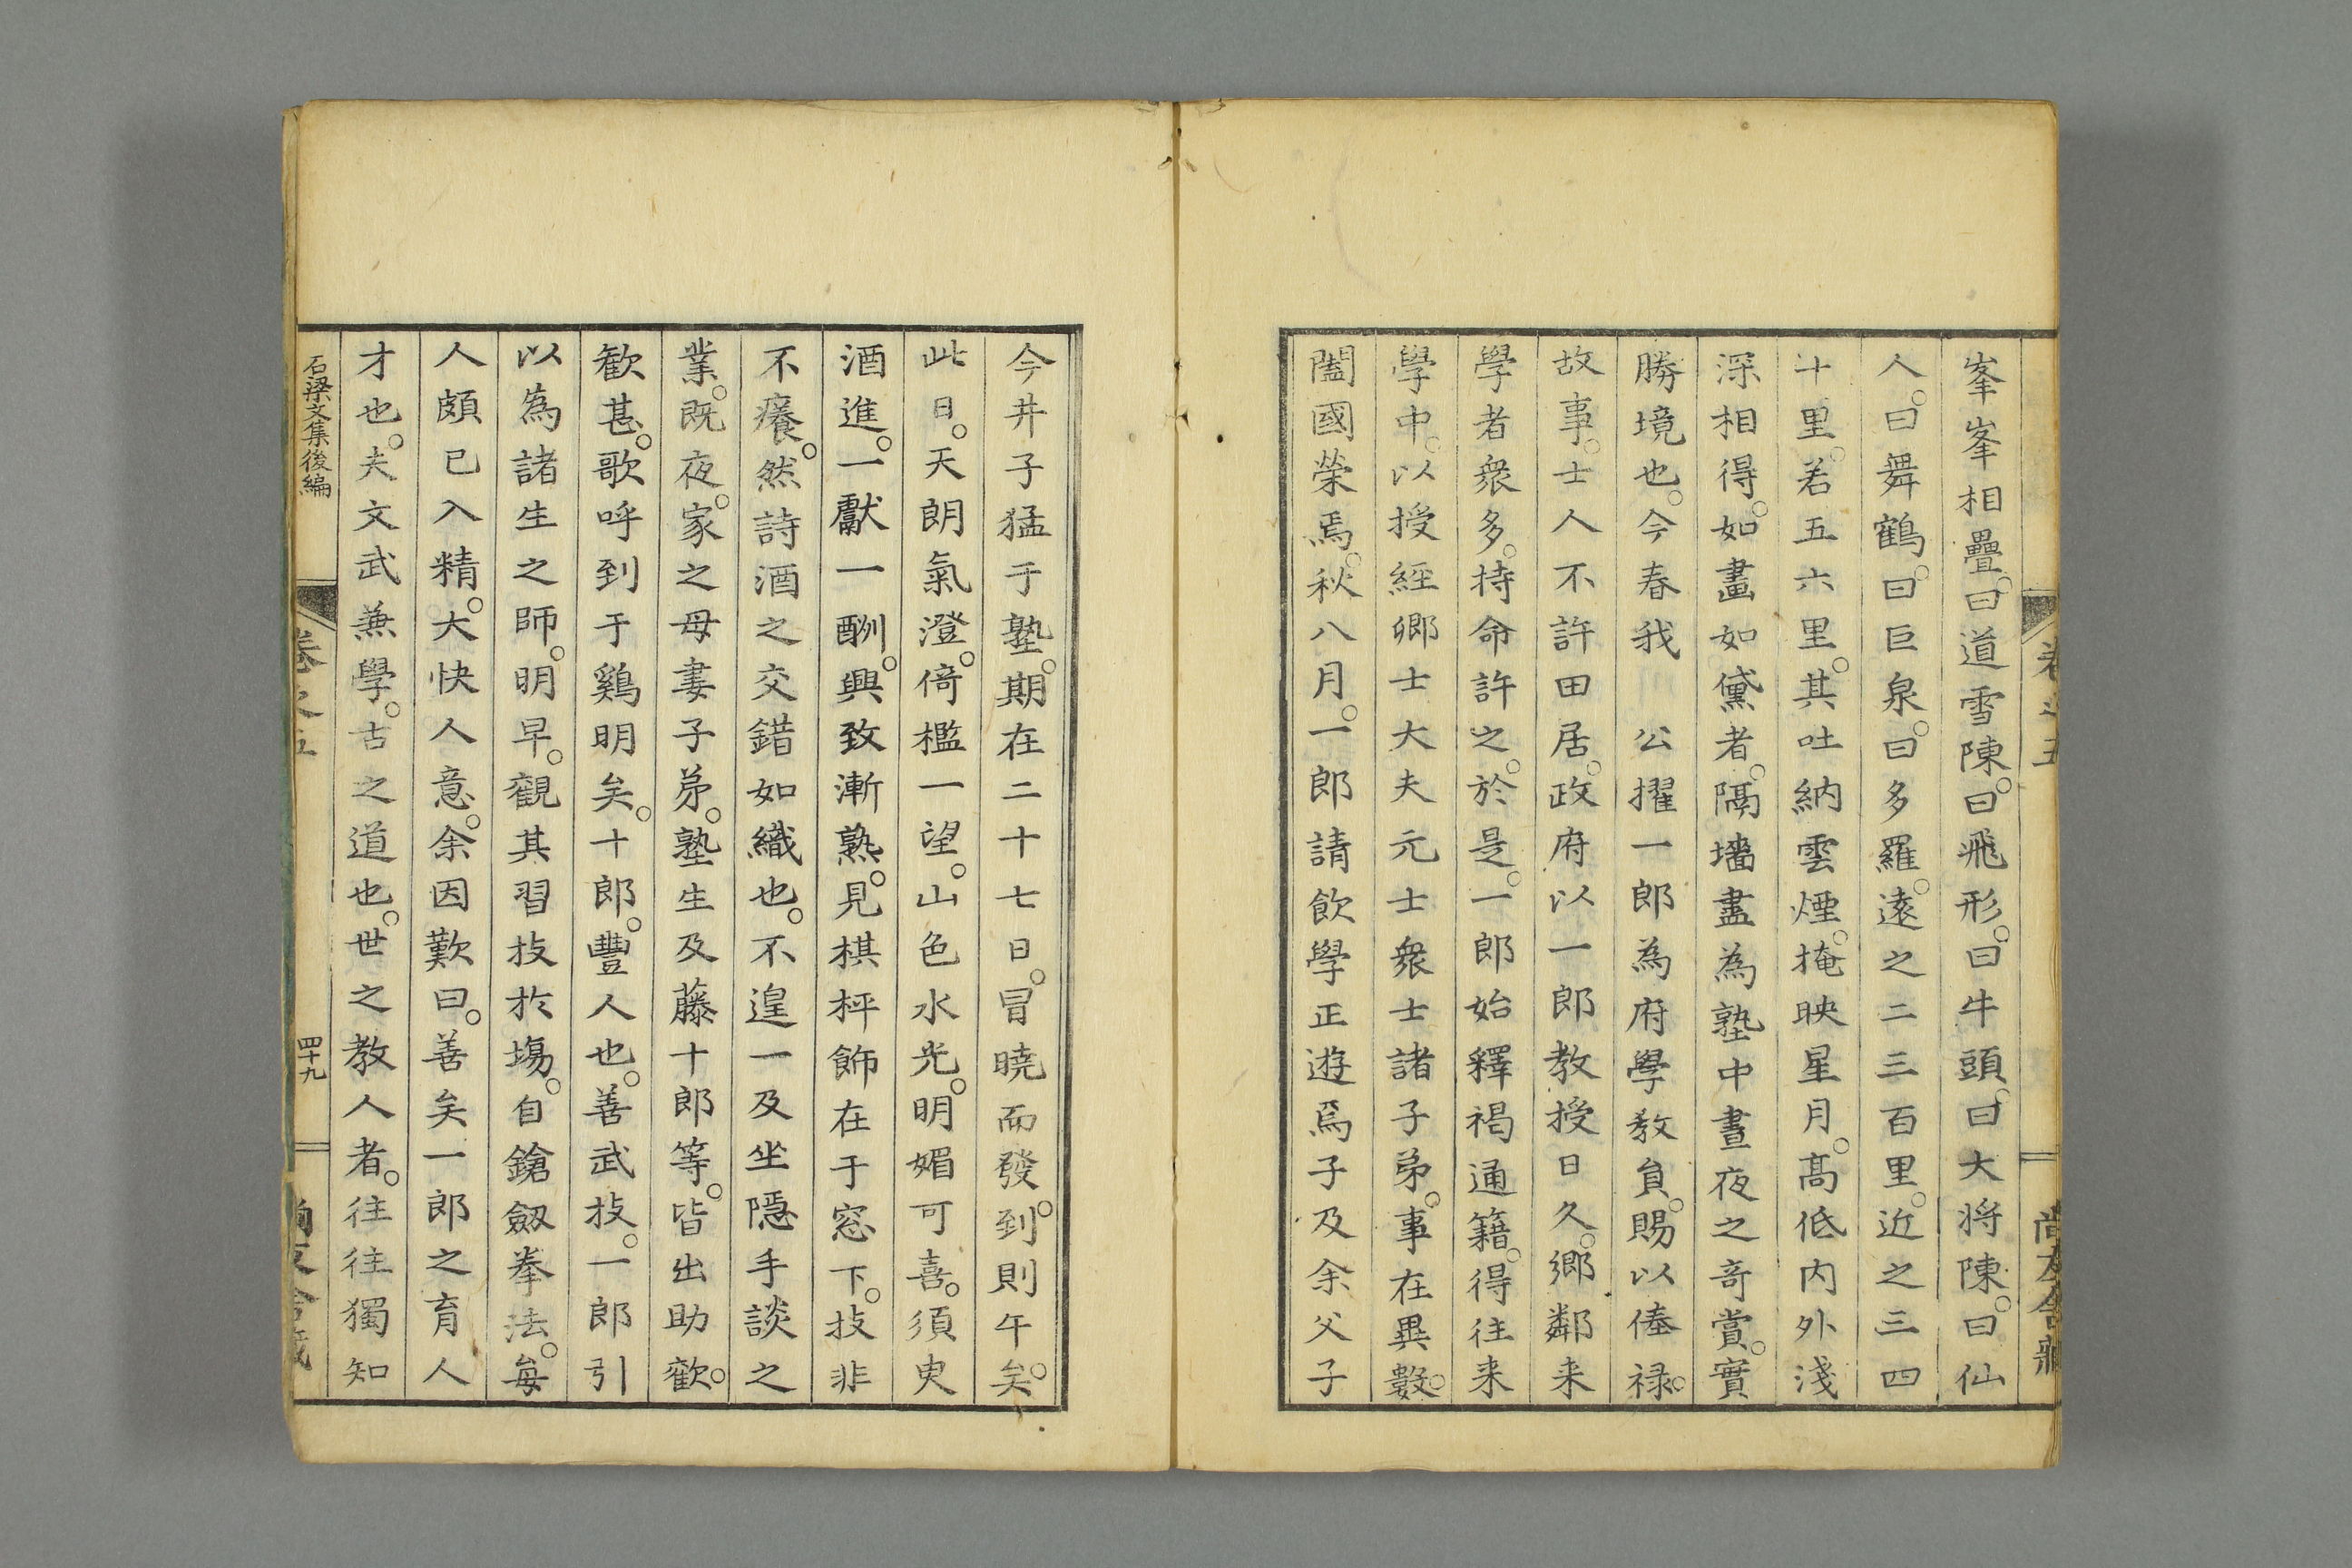 峯峯相疊。曰道雪陳。曰飛形。曰牛頭。曰大将陳。曰仙
人。曰舞鶴。曰巨泉。曰多羅。遠之二三百里。近之三四
十里。若五六里。其吐納雲煙。掩映星月。髙低内外淺
深相得。如畫如黛者。隔墻盡為塾中晝夜之竒賞。實
勝境也。今春我　公擢一郎為府學教員。賜以俸禄。
故事。士人不許田居。政府以一郎教授日久。鄉鄰来
學者衆多。持命許之。於是。一郎始釋褐通籍。得往来
學中。以授經卿士大夫元士衆士諸子弟。事在異數。
闔國榮焉。秋八月。一郎請飲學正遊焉子及余父子
今井子猛于塾。期在二十七日。冒曉而發。到則午矣。
此日。天朗氣澄。倚檻一望。山色水光。明媚可喜。須臾
酒進。一獻一酬。興致漸熟。見棋枰飾在于窓下。技非
不癢。然詩酒之交錯如織也。不遑一及坐隱手談之
業。既夜。家之母妻子弟。塾生及藤十郎等。皆出助歡。
歓甚。歌呼到于鷄明矣。十郎。豐人也。善武技。一郎引
以為諸生之師。明早。觀其習技於場。自鎗劔拳法。每
人頗已入精。大快人意。余因歎曰。善矣一郎之育人
才也。夫文武兼學。古之道也。世之教人者。往往獨知
石梁文集後編
卷之五
四十九
尚友舎蔵